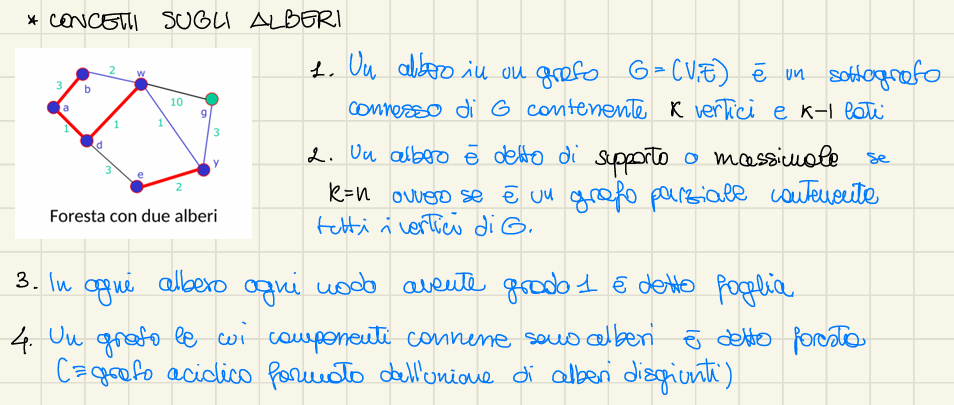 * CONCETTI SUGLI ALBERI
3 2 b w 10 g
a 1 1 1 3
d 3 e 2 y
Foresta con due alberi
1. Un albero in un grafo G=(V,E) è un sottografo
connesso di G contenente K vertici e K-1 lati
2. Un albero è detto di supporto o massimale se
K=n ovvero se è un grafo parziale contenente
tutti i vertici di G.
3. In ogni albero ogni nodo avente grado 1 è detto foglia
4. Un grafo le cui componenti connesse sono alberi è detto foresta
(≡ grafo aciclico formato dall'unione di alberi disgiunti)